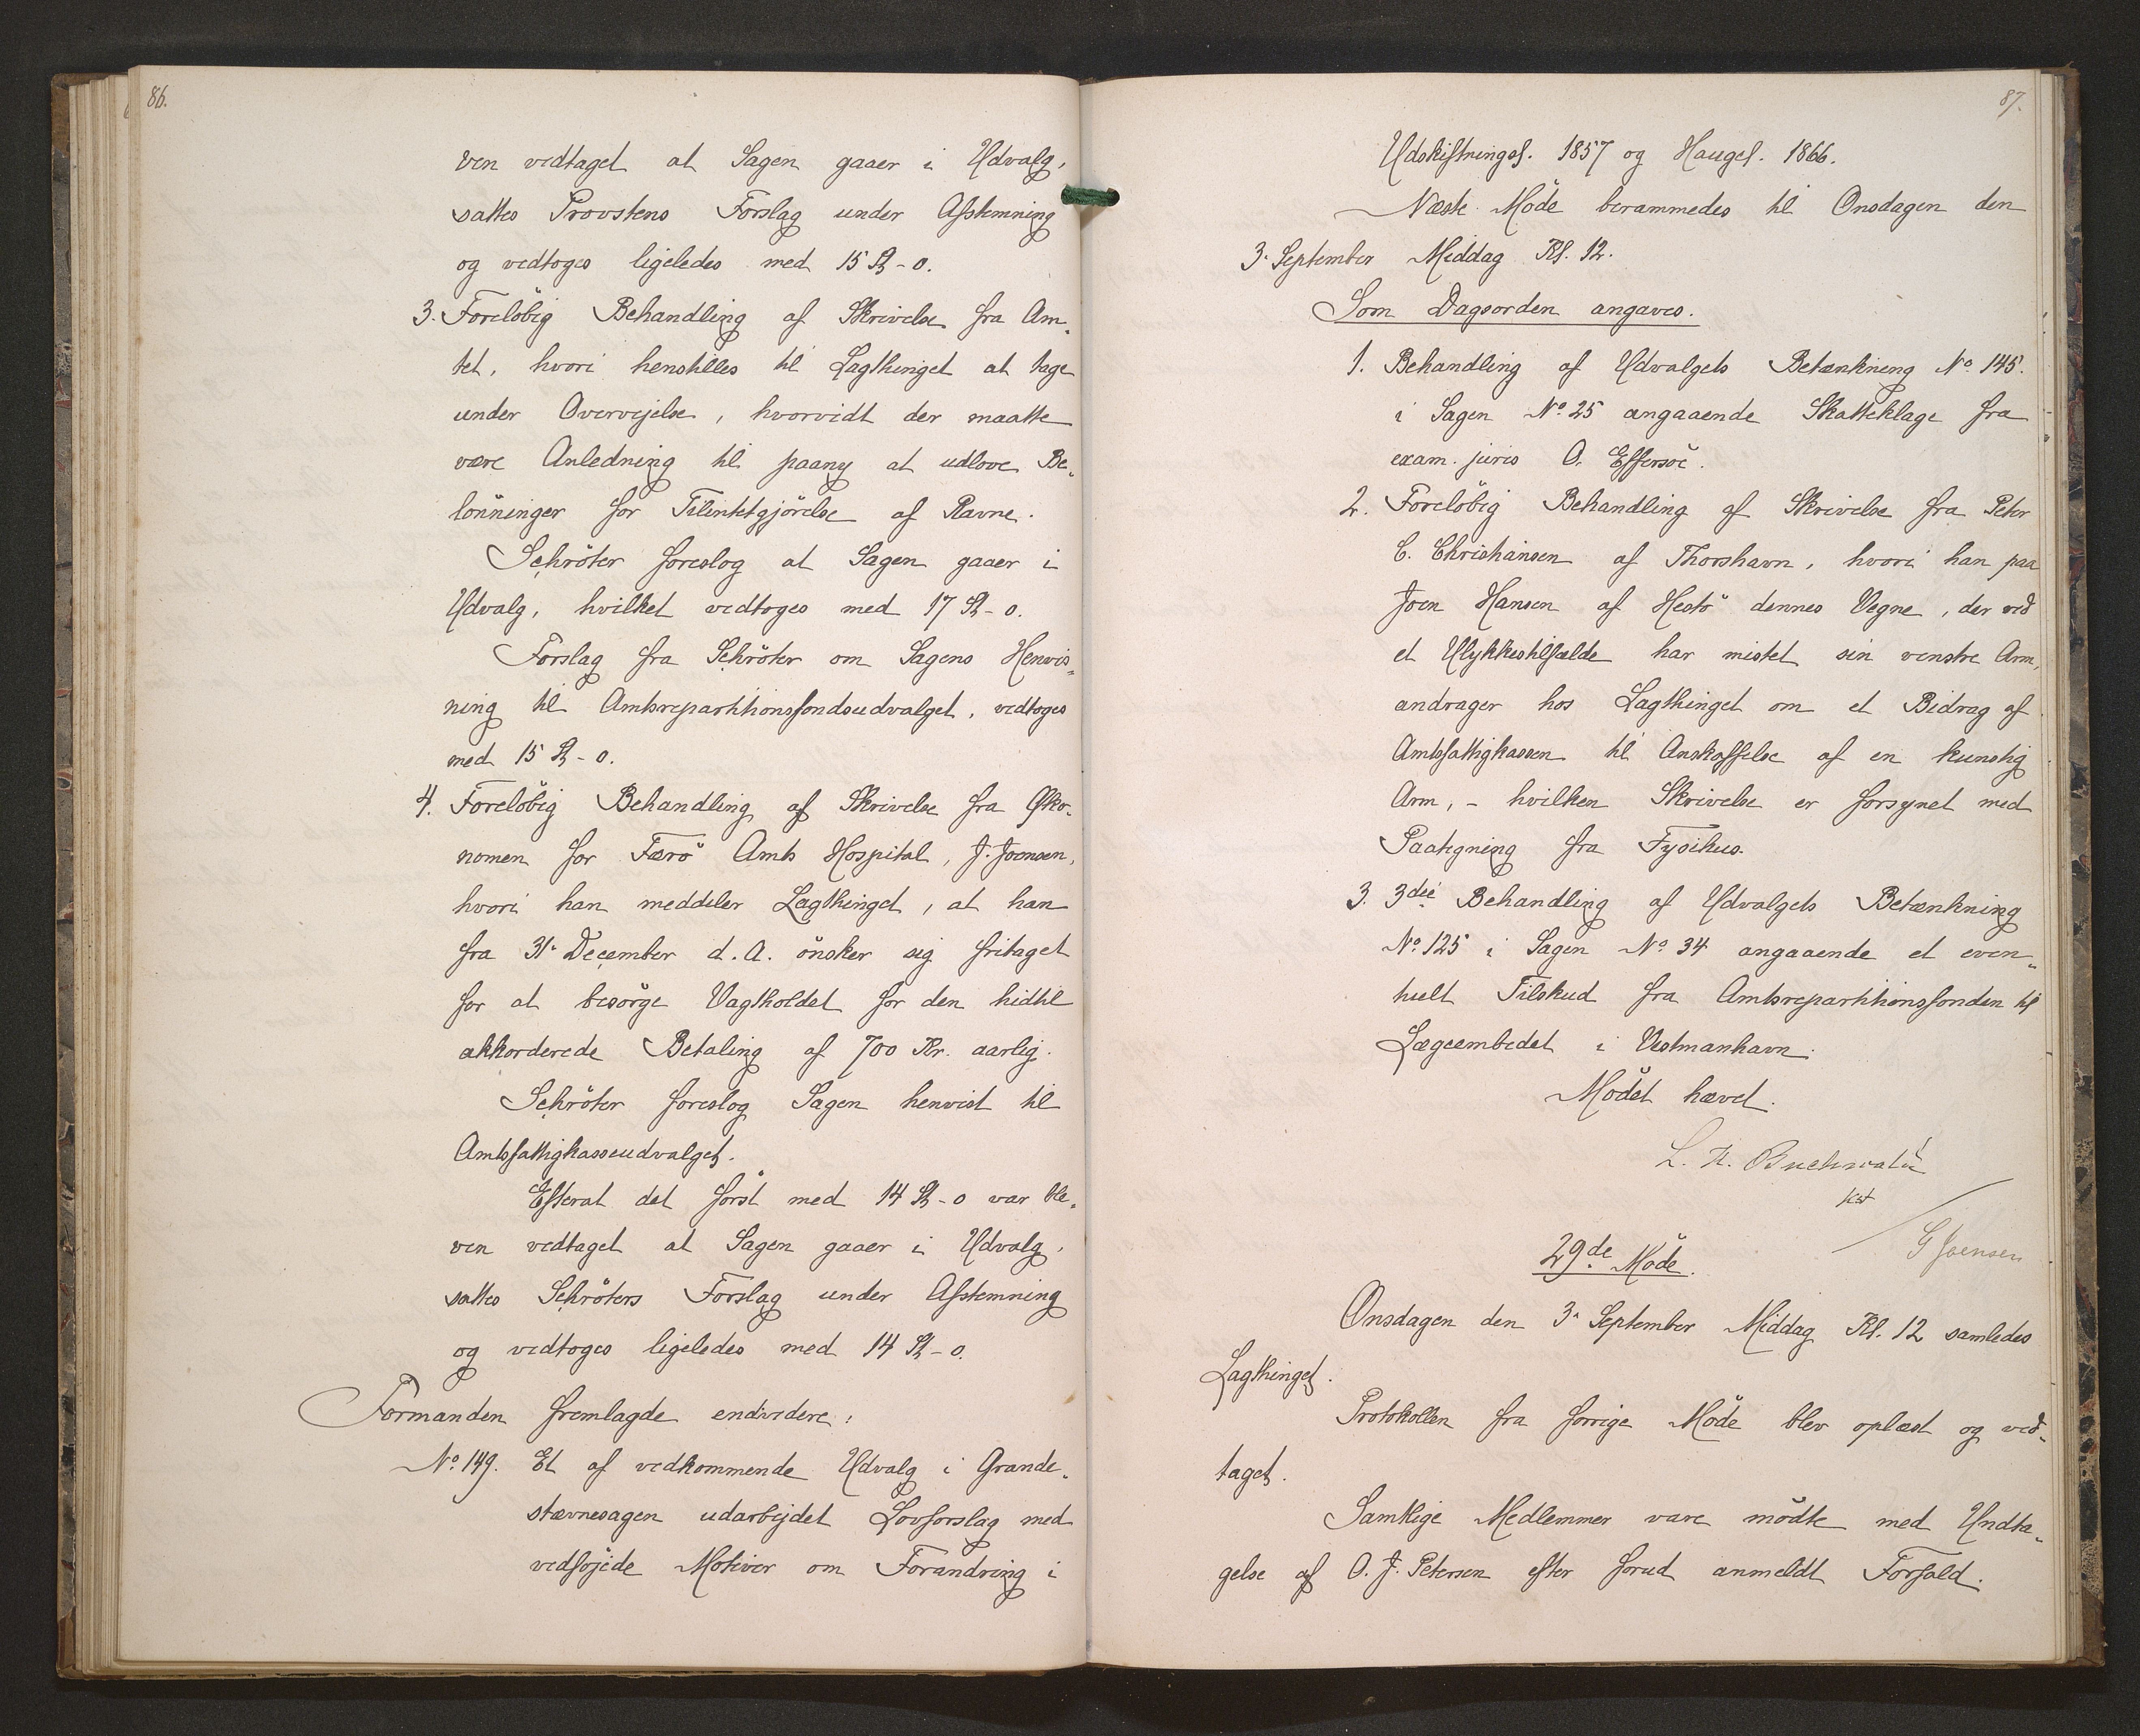 86.
ven vedtaget at Sagen gaaer i Udvalg,
sattes Provstens Forslag under Afstemning
og vedtoges ligeledes med 15 St - 0.
3. Foreløbig Behandling af Skrivelse fra Am-
tet, hvori henstilles til Lagthinget at tage
under Overvejelse, hvorvidt der maatte
være Anledning til paany at udlove Be-
lönninger for Tilintetgjörelse af Ravne.
Schröter foreslog at Sagen gaaer i
Udvalg, hvilket vedtoges med 17 St - 0.
Forslag fra Schröter om Sagens Henvis-
ning til Amtsrepartitionsfondsudvalget, vedtoges
med 15 St - 0.
4. Forelöbig Behandling af Skrivelse fra Øko-
nomen for Færö Amts Hospital, J. Joensen,
hvori han meddeler Lagthinget, at han
fra 31. December d. A. önsker sig fritaget
for at besörge Vagtholdet for den hidtil
akkorderede Betaling af 700 Kr. aarlig.
Schröter foreslog Sagen henvist til
Amtsfattigkasseudvalget.
Efterat det först med 14 St - 0 var ble-
ven vedtaget at Sagen gaaer i Udvalg,
sattes Schröters Forslag under Afstemning
og vedtoges ligeledes med 14 St - 0.
Formanden fremlagde endvidere:
No. 149. Et af vedkommende Udvalg i Grande-
stævnesagen udarbejdet Lovforslag med
vedföjede Motiver om Forandring i
87.
Udskiftningsl. 1857 og Haugel. 1866.
Næste Möde berammedes til Onsdagen den
3. September Middag Kl. 12.
Som Dagsorden angaves.
1. Behandling af Udvalgets Betænkning No. 145.
i Sagen No. 25 angaaende Skatteklage fra
exam. juris O. Effersöe.
2. Forelöbig Behandling af Skrivelse fra Peter
C. Christiansen af Thorshavn, hvori han paa
Joen Hansen af Hestö dennes Vegne, der ved
et Ulykkestilfælde har mistet sin venstre Arm,
andrager hos Lagthinget om et Bidrag af
Amtsfattigkassen til Anskaffelse af en kunstig
Arm, - hvilken Skrivelse er forsynet med
Paategning fra Fysikus.
3. 3die Behandling af Udvalgets Betænkning
No. 125 i Sagen No. 34 angaaende et even-
tuelt Tilskud fra Amtsrepartitionsfonden til
Lægeembedet i Vestmanhavn.
Mödet hævet.
L. H. Buchwald
kst
G Joensen
29de Möde.
Onsdagen den 3. September Middag Kl. 12 samledes
Lagthinget.
Protokollen fra forrige Möde blev oplæst og ved-
taget.
Samtlige Medlemmer vare mödte med Undta-
gelse af O. J. Petersen efter forud anmeldt Forfald.